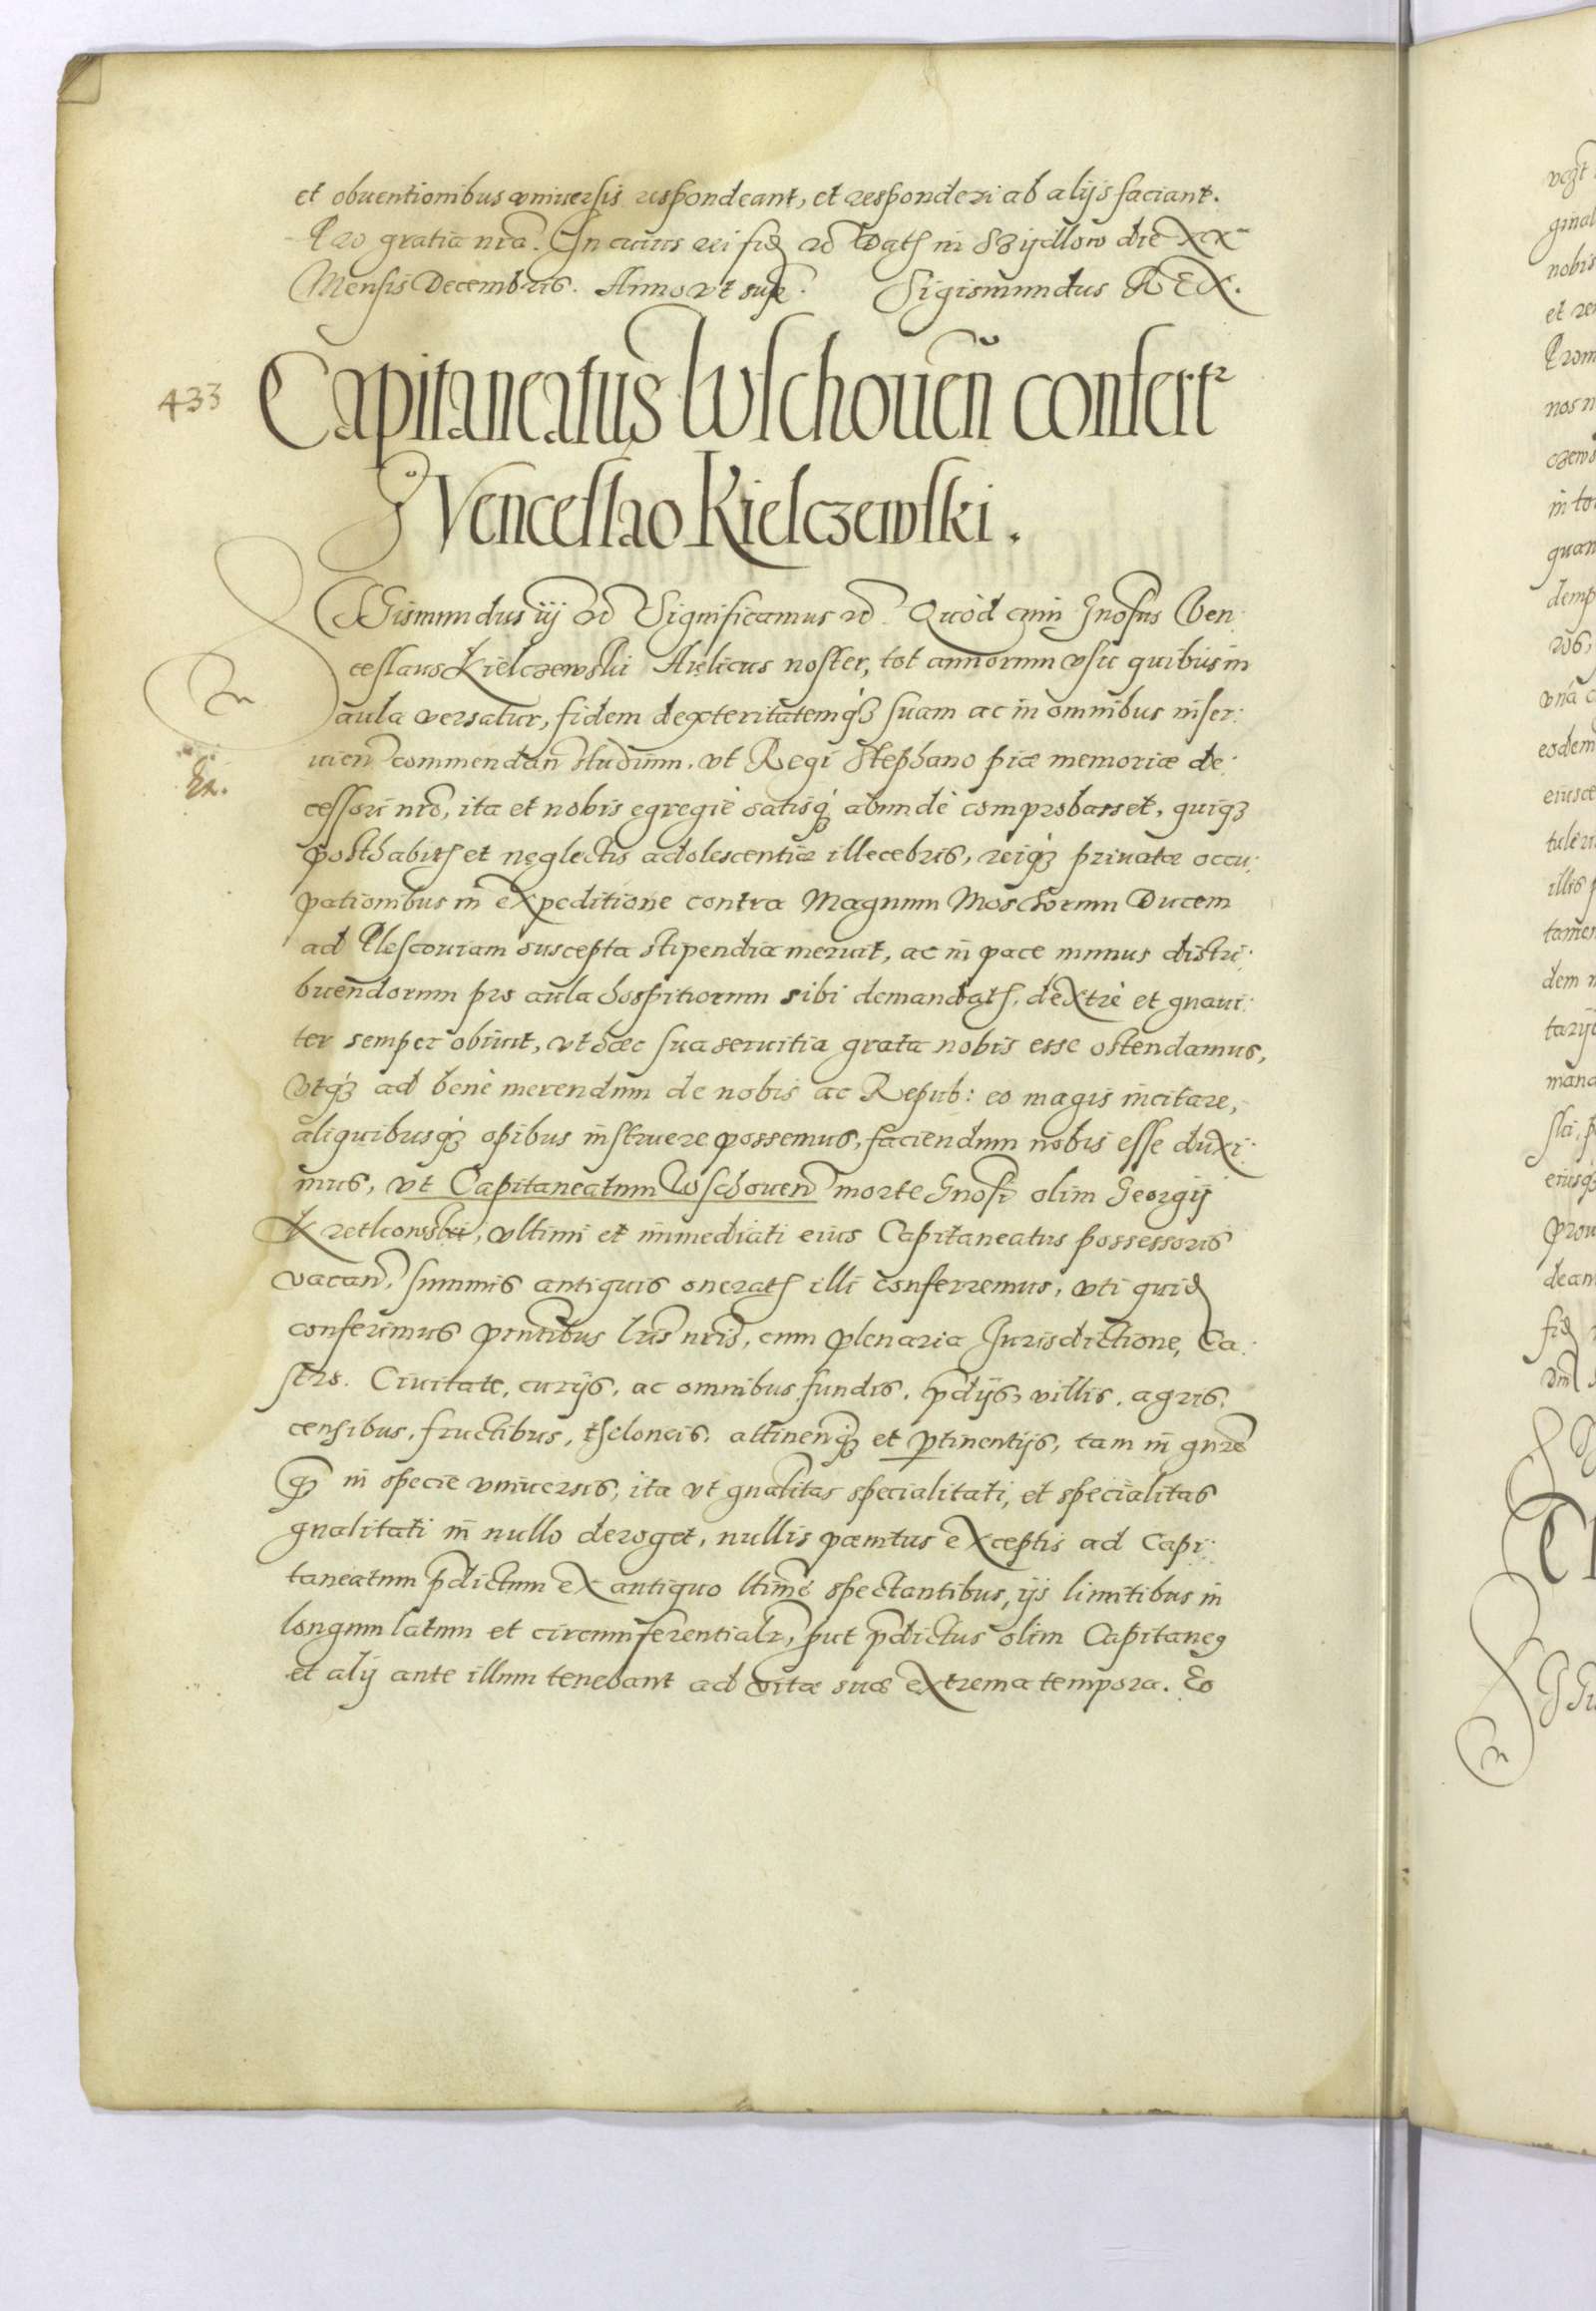 et obuentionibus vniuersis respondeant, et responderi ab alijs faciant.
Pro gratia nra. In cuius rei fid. &c Dat. in Szijdlow die XX
Mensis Decembris. Anno vt sup. Sigismundus REX.
433
Capitaneatus Wschouen confertr
G Venceslao Kielczewski.
SGismundus iij &c Significamus &c. Quòd cum Gnosus Ven:
ceslaus Kielczewski Aulicus noster, tot annorum vsu quibus in
aula versatur, fidem dexteritatemq3 suam ac in omnibus inser:
uien commendan studium, vt Regi Stephano piæ memoriæ de:
cessori nro, ita et nobis egregiè satisq3 abundè comprobasset, quiq3
posthabit. et neglectis adolescentiæ illecebris, reiq3 priuatæ occu:
pationibus in expeditione contra Magnum Moschorum Ducem
ad Plescouiam suscepta stipendia meruit, ac in pace munus distri:
buendorum pro aula hospitiorum sibi demandat. dextrè et gnaui:
ter semper obiuit, vt hæc sua seruitia grata nobis esse ostendamus,
vtq3 ad benè merendum de nobis ac Repub: eo magis incitare,
aliquibusq3 opibus instruere possemus, faciendum nobis esse duxi:
mus, vt Capitaneatum Wschouen morte Gnosi olim Georgij
Kretkowski, vltimi et immediati eius Capitaneatus possessoris
vacan, summis antiquis onerat. illi conferremus, vti quid.
conferimus pntibus lris nris, cum plenaria Jurisdictione, Ca:
stro. Ciuitate, curijs, ac omnibus fundis, pdijs, villis, agris,
censibus, fructibus, theloneis, attinenq3 et ptinentijs, tam in gnre
q3 in specie vniuersis, ita vt gnalitas specialitati, et specialitas
gnalitati in nullo deroget, nullis pænitus exceptis ad Capi:
taneatum pdictum ex antiquo ltime spectantibus, ijs limitibus in
longum latum et circumferentialr, put pdictus olim Capitaneus
et alij ante illum tenebant ad vitæ suæ extrema tempora. Eo